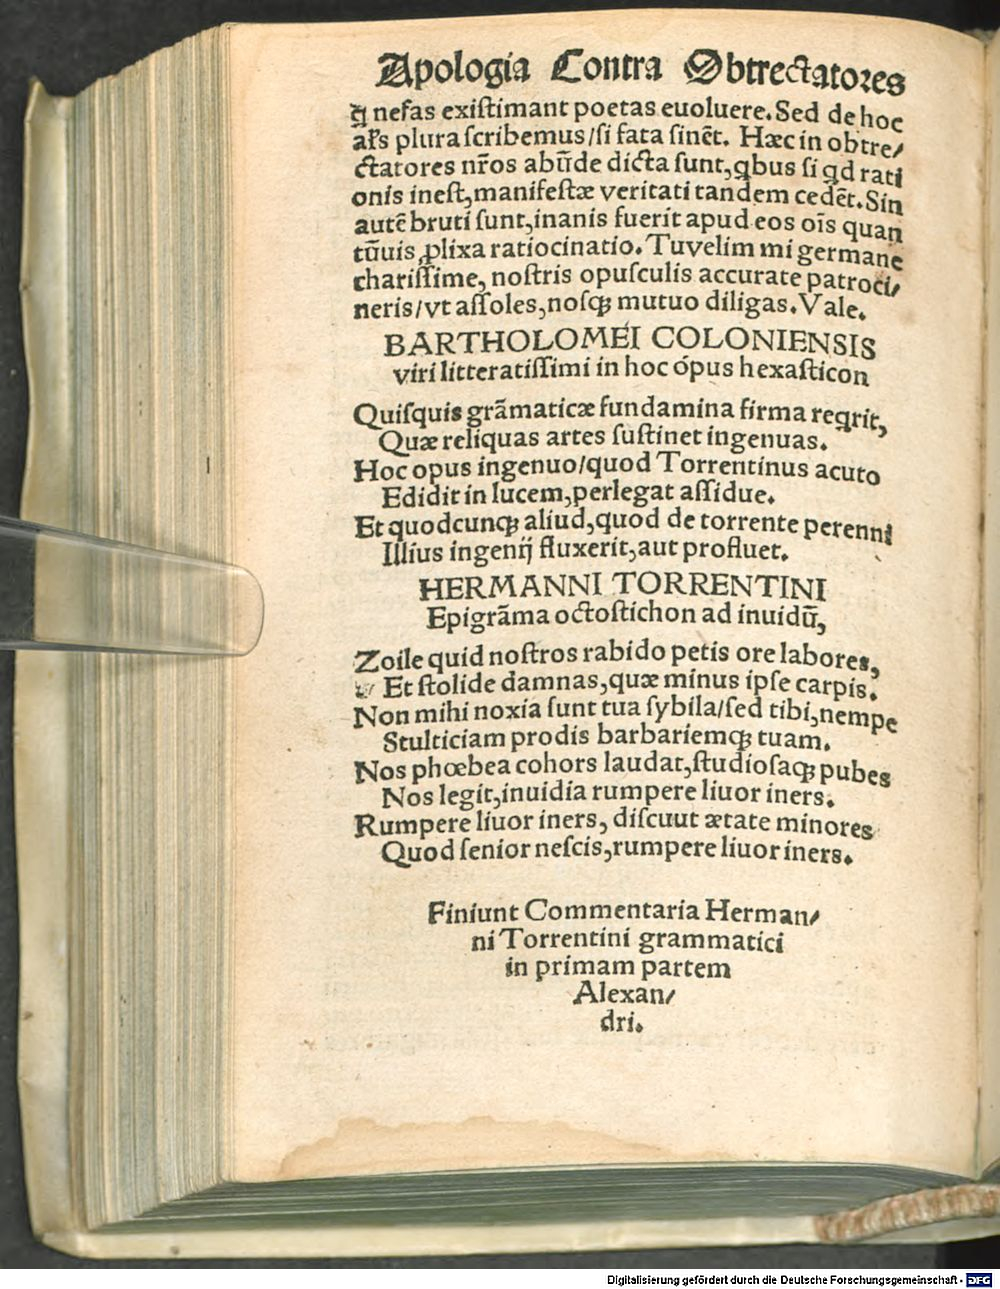 Apologia Contra Obtrectatores
q̃ nefas existimant poetas euoluere. Sed de hoc
al's plura scribemus/si fata sinēt. Hæc in obtre/
ctatores nr̄os abūde dicta sunt, qbus si qd rati
onis inest, manifestæ veritati tandem cedēt. Sin
autē bruti sunt, inanis fuerit apud eos oīs quan
tūuis ꝓlixa ratiocinatio. Tu velim mi germane
charissime, nostris opusculis accurate patroci/
neris/vt assoles, nosqꝫ mutuo diligas. Vale.
BARTHOLOMEI COLONIENSIS
viri litteratissimi in hoc opus hexasticon
Quisquis grāmaticæ fundamina firma reqrit,
Quæ reliquas artes sustinet ingenuas.
Hoc opus ingenuo/quod Torrentinus acuto
Edidit in lucem, perlegat assidue.
Et quodcunqꝫ aliud, quod de torrente perenni
Illius ingenij fluxerit, aut profluet.
HERMANNI TORRENTINI
Epigrāma octostichon ad inuidū,
Zoile quid nostros rabido petis ore labores,
Et stolide damnas, quæ minus ipse carpis.
Non mihi noxia sunt tua sybila/sed tibi, nempe
Stulticiam prodis barbariemqꝫ tuam.
Nos phœbea cohors laudat, studiosaqꝫ pubes
Nos legit, inuidia rumpere liuor iners.
Rumpere liuor iners, discuut ætate minores
Quod senior nescis, rumpere liuor iners.
Finiunt Commentaria Herman/
ni Torrentini grammatici
in primam partem
Alexan/
dri.
Digitalisierung gefördert durch die Deutsche Forschungsgemeinschaft - DFG